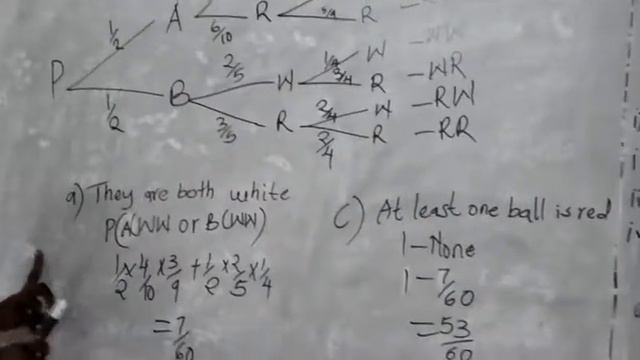 1/2 A 6/10 R R
P 1/2 B 2/5 W 1/4 W - WW
3/4 R - WR
3/5 R 2/4 W - RW
2/4 R - RR
a) They are both white
P(AWW or B(WW)
1/2 x 4/10 x 3/9 + 1/2 x 2/5 x 1/4
= 7/60
C) At least one ball is red
1 - None
1 - 7/60
= 53/60